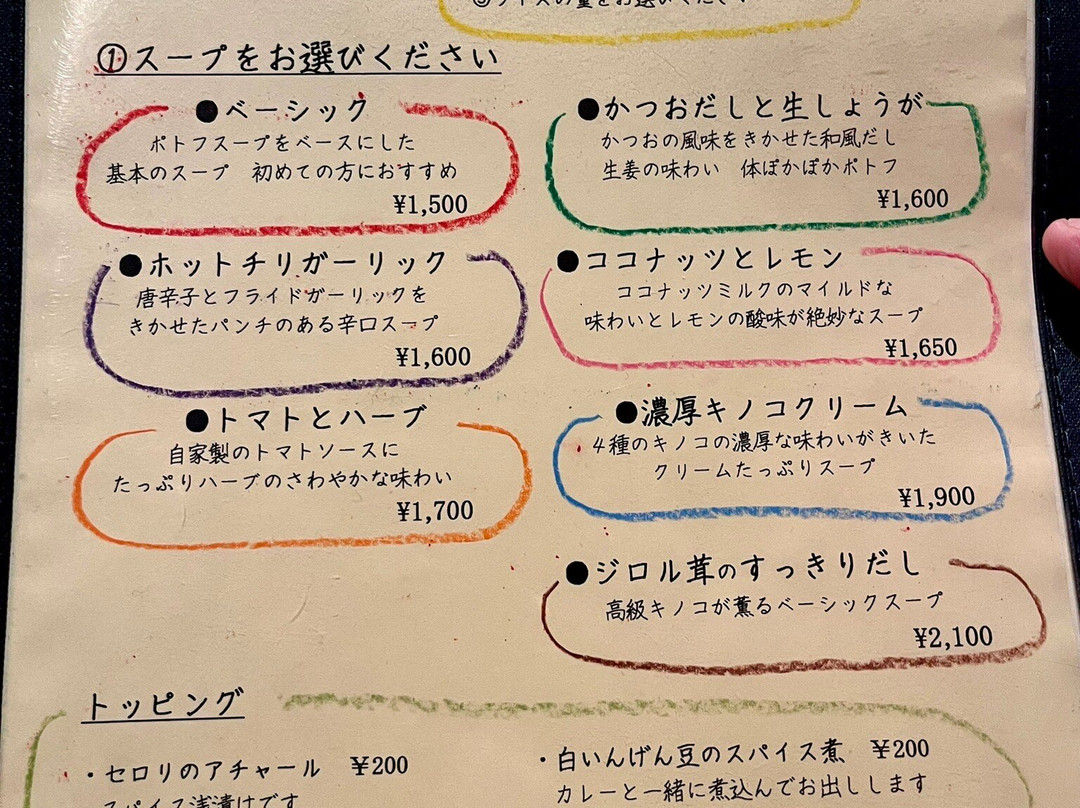 ①スープをお選びください
●ベーシック
ポトフスープをベースにした
基本のスープ　初めての方におすすめ
¥1,500
●ホットチリガーリック
唐辛子とフライドガーリックを
きかせたパンチのある辛口スープ
¥1,600
●トマトとハーブ
自家製のトマトソースに
たっぷりハーブのさわやかな味わい
¥1,700
●かつおだしと生しょうが
かつおの風味をきかせた和風だし
生姜の味わい　体ぽかぽかポトフ
¥1,600
●ココナッツとレモン
ココナッツミルクのマイルドな
味わいとレモンの酸味が絶妙なスープ
¥1,650
●濃厚キノコクリーム
4種のキノコの濃厚な味わいがきいた
クリームたっぷりスープ
¥1,900
●ジロル茸のすっきりだし
高級キノコが薫るベーシックスープ
¥2,100
トッピング
・セロリのアチャール　¥200
スパイス浅漬けです
・白いんげん豆のスパイス煮　¥200
カレーと一緒に煮込んでお出しします